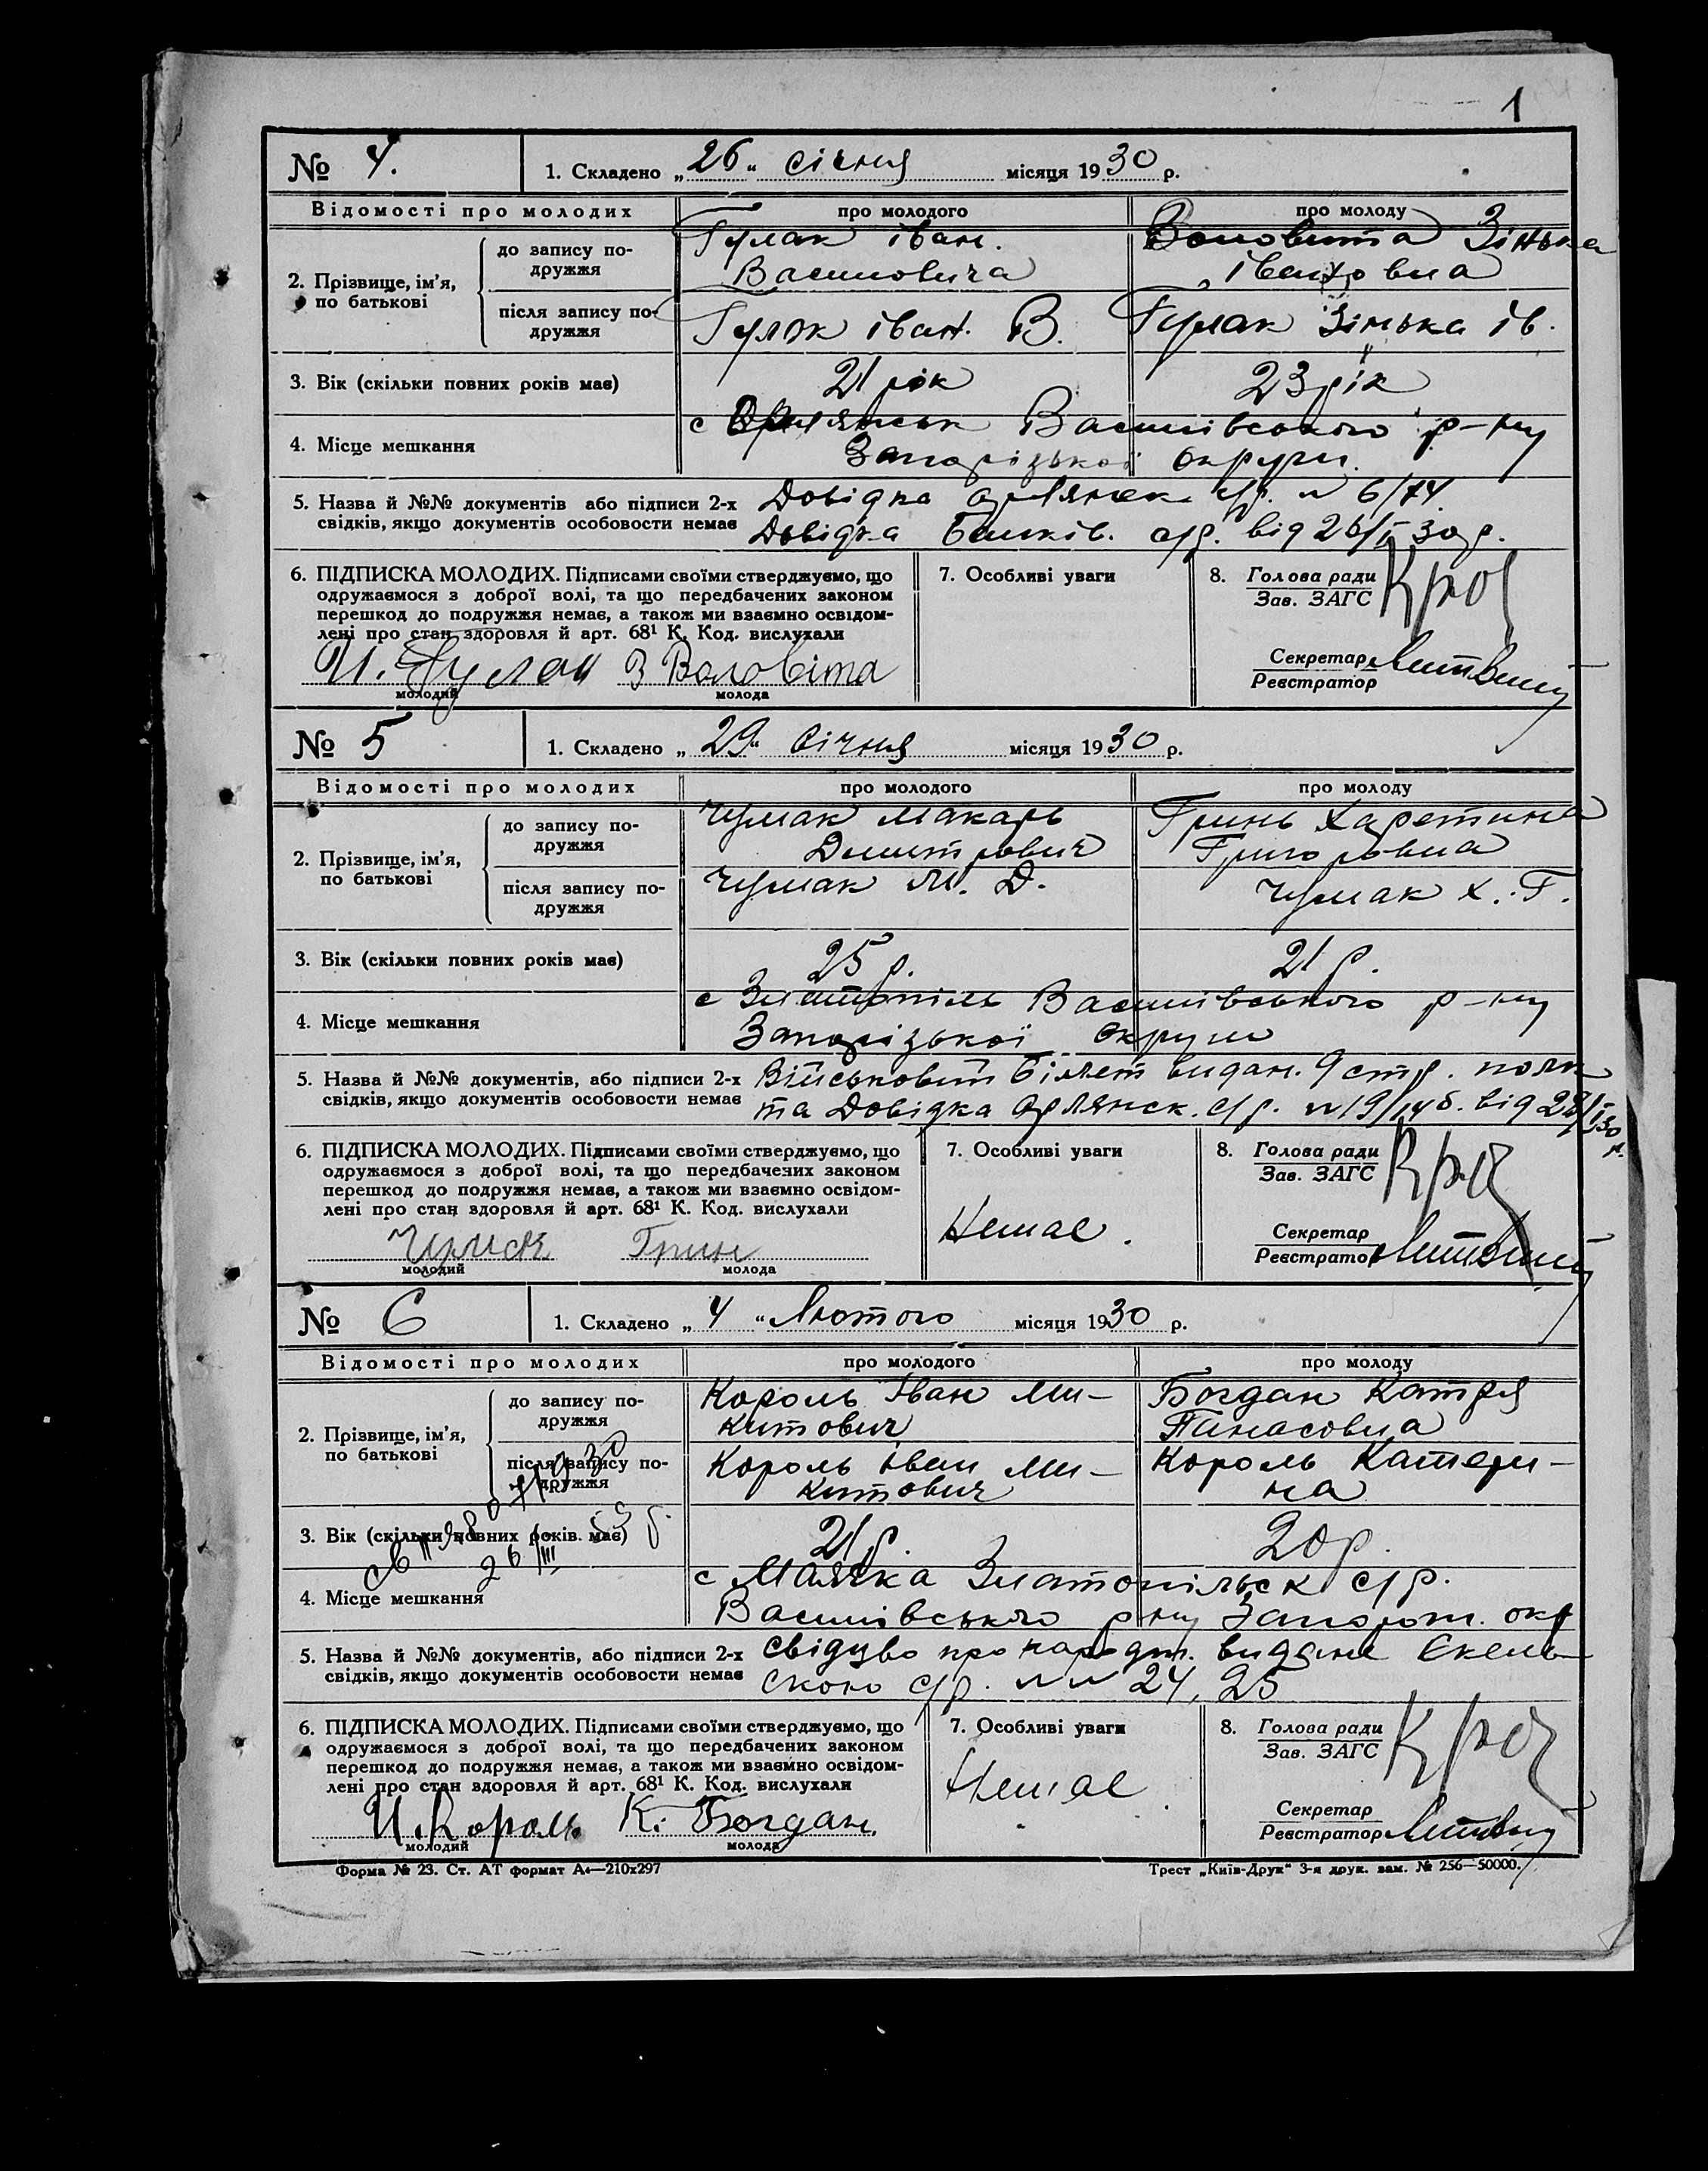 1
№ 4. 1. Складено „26“ січня місяця 1930 р.
Відомості про молодих про молодого про молоду
2. Прізвище, ім’я, по батькові
до запису по-
дружжя
Гулак іван. Воловита Зінька
Василовича івановна
після запису по-
дружжя
Гулак іван. В. Гулак Зінька ів.
3. Вік (скільки повних років має) 21 рік 23 рік
4. Місце мешкання
с Орлянськ Василівського р-ну
Запорізької округи.
5. Назва й №№ документів або підписи 2-х
свідків, якщо документів особовости немає
Довідка орлянск с/р. № 6/74
Довідка с/р. від 26/I 30 р.
6. ПІДПИСКА МОЛОДИХ. Підписами своїми стверджуємо, що
одружаємося з доброї волі, та що передбачених законом
перешкод до подружжя немає, а також ми взаємно освідом-
лені про стан здоровля й арт. 68¹ К. Код. вислухали
И. Гулак З Воловіта
молодий молода
7. Особливі уваги
8. Голова ради
Зав. ЗАГС
Секретар
Реєстратор
Литвин
№ 5 1. Складено „29“ січня місяця 1930 р.
Відомості про молодих про молодого про молоду
2. Прізвище, ім’я,
по батькові
до запису по-
дружжя
Чумак Макарь Гринь Харетина
Дмитрович Григоровна
після запису по-
дружжя
Чумак М. Д. Чумак Х. Г.
3. Вік (скільки повних років має) 25 р. 21 р.
4. Місце мешкання
с Златопіль Василівського р-ну
Запорізької округи
5. Назва й №№ документів, або підписи 2-х
свідків, якщо документів особовости немає
Військовий білет видан. 9 стр. полк
та Довідка орлянск. с/р. № 19/146. від 28/I 30 р.
6. ПІДПИСКА МОЛОДИХ. Підписами своїми стверджуємо, що
одружаємося з доброї волі, та що передбачених законом
перешкод до подружжя немає, а також ми взаємно освідом-
лені про стан здоровля й арт. 68¹ К. Код. вислухали
Чумак Грин
молодий молода
7. Особливі уваги
Немає.
8. Голова ради
Зав. ЗАГС
Секретар
Реєстратор
Литвин
№ 6 1. Складено „4“ Лютого місяця 1930 р.
Відомості про молодих про молодого про молоду
2. Прізвище, ім’я,
по батькові
до запису по-
дружжя
Король Іван Ми- Богдан Катря
китович Панасовна
після запису по-
дружжя
Король Іван Ми- Король Катери-
китович на
3. Вік (скільки повних років має) 21 р. 20 р.
26/III 53 р.
4. Місце мешкання
с Маячка Златопільск с/р.
Василівського р-ну Запорож. окр
5. Назва й №№ документів, або підписи 2-х
свідків, якщо документів особовости немає
свідцво про народж. видане
скою с/р. №№ 24, 25
6. ПІДПИСКА МОЛОДИХ. Підписами своїми стверджуємо, що
одружаємося з доброї волі, та що передбачених законом
перешкод до подружжя немає, а також ми взаємно освідом-
лені про стан здоровля й арт. 68¹ К. Код. вислухали
И. Король К. Богдан.
молодий молода
7. Особливі уваги
Немає
8. Голова ради
Зав. ЗАГС
Секретар
Реєстратор
Литвин
Форма № 23. Ст. АТ формат А₄—210х297 Трест „Київ-Друк“ 3-я друк. зам. № 256—50000.